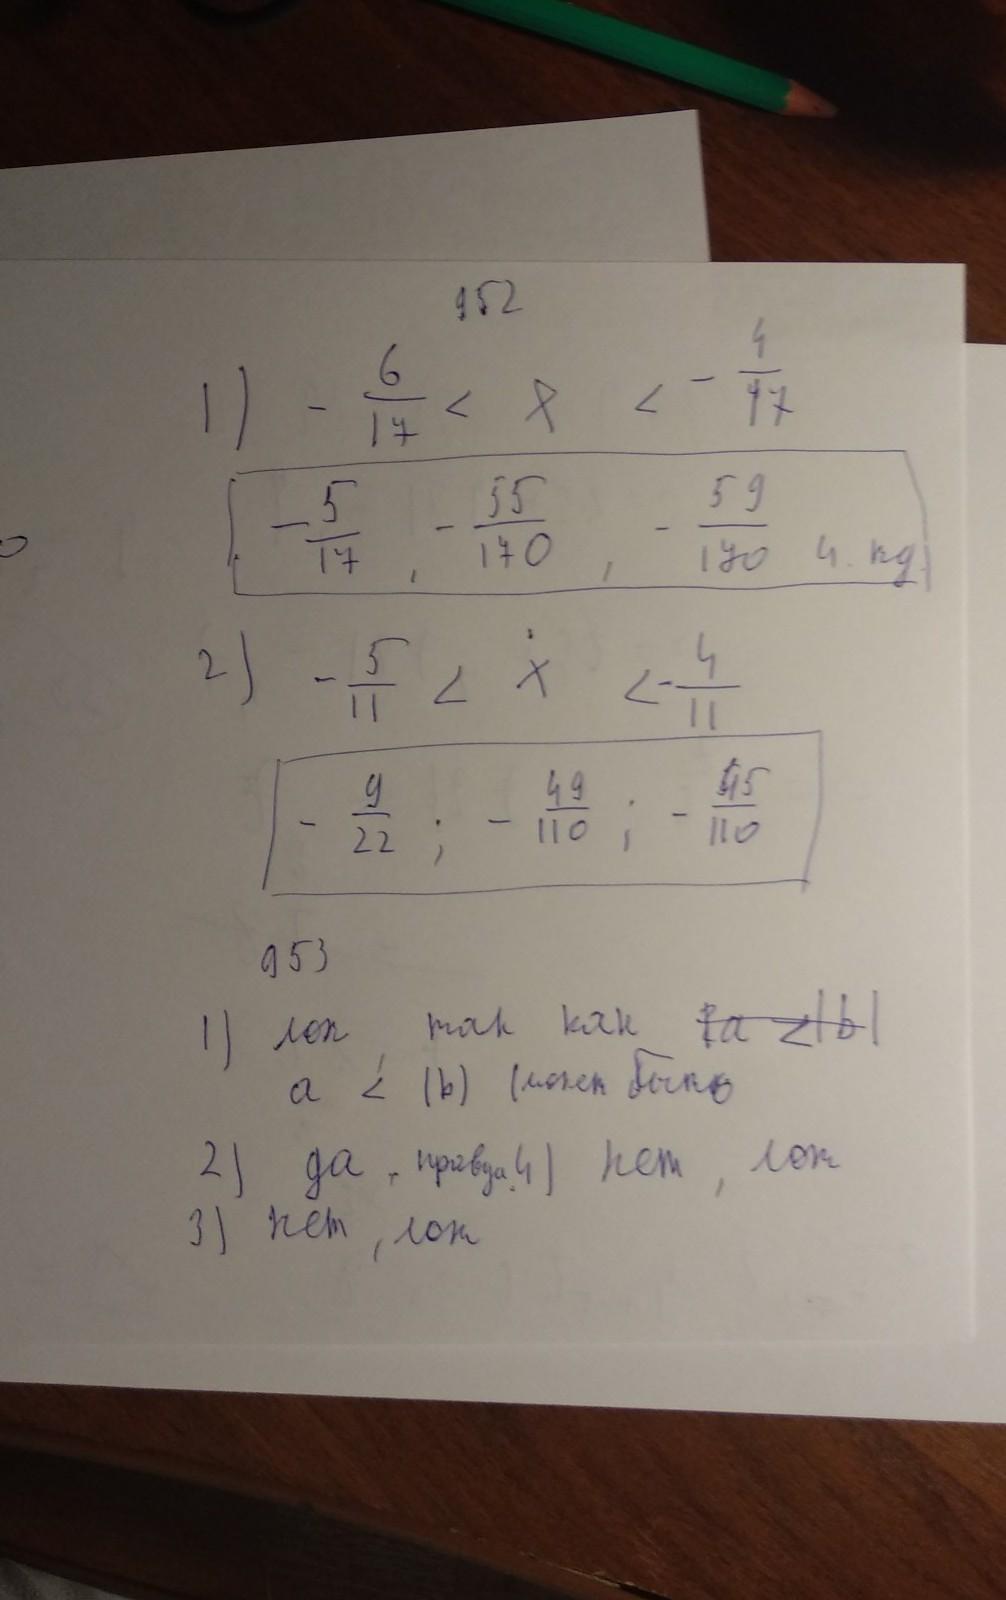 952
1) - 6/17 < x < - 4/17
- 5/17, - 55/170, - 59/170 и. нд.
2) - 5/11 < x < - 4/11
- 9/22 ; - 49/110 ; - 45/110
953
1) лож, так как
a < |b| (может быть
2) да, правда. 4) нет, лож
3) нет, лож